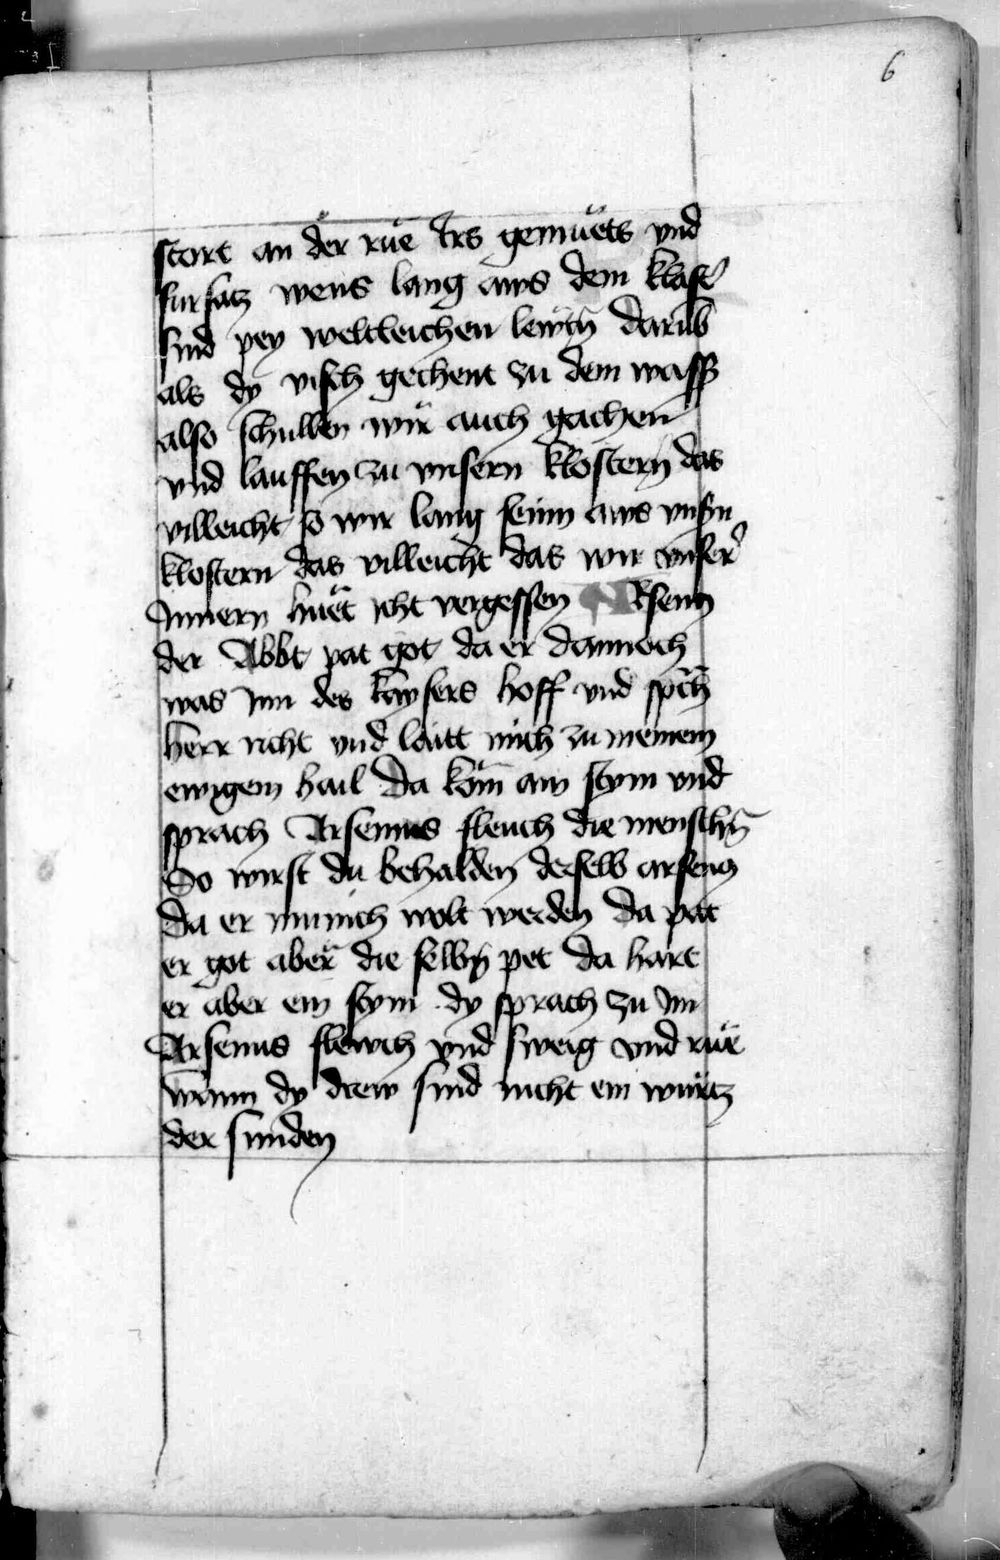 6
stört an der rue Irs gemuets vnd
fursatz wens lang aws dem klost'
sind pey weltleichen lewtn̄ darūb
als dy visch gechent zu dem wass'
also schullen wir auch gachen
vnd lauffen zu vnsern klostern das
villeicht so wir lang seinn aws vnsn̄
klostern das villeicht das wir vnser'
Innern huet icht vergessen ARseny
der Abbt pat got da er dannoch
was Inn des kaysers hoff vnd spch̄
herr richt vnd laitt mich zu meinem
ewigem hail Da kom̄ ain stym vnd
sprach Arsenius fleuch die menschn̄
So wirst du behalden derselb arseny
da er munich wolt werden da pat
er got aber die selbn̄ pet da hart
er aber ein stym dy sprach zu Im
Arsenius flewch vnd sweig vnd rue
wann dy drew sind nicht ein wurtz
der sunden